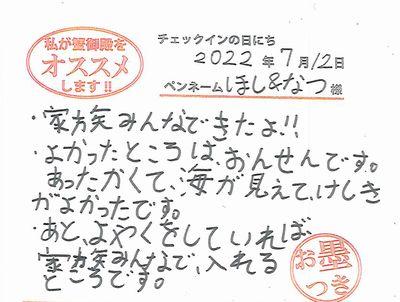 私が蟹御殿を
オススメ
します!!
チェックインの日にち
2022 年 7 月 12 日
ペンネーム ほし&なつ 様
・家族みんなできたよ!!
・よかったところは、おんせんです。
あったかくて、海が見えて、けしき
がよかったです。
・あと、よやくをしていれば、
家族みんなで、入れる
ところです。
お墨
つき